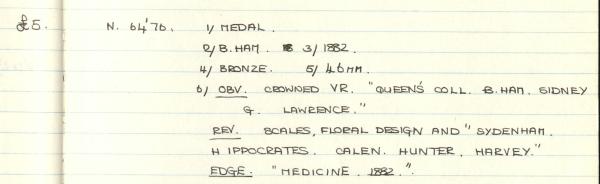 £5. N. 64'76. 1/ MEDAL.
2/ B.HAM. 3/ 1882.
4/ BRONZE. 5/ 46MM.
6/ OBV. CROWNED VR. "QUEEN'S COLL. B.HAM. SIDNEY
G. LAWRENCE."
REV. SCALES, FLORAL DESIGN AND "SYDENHAM.
HIPPOCRATES. CALEN. HUNTER, HARVEY."
EDGE: "MEDICINE. 1882.".